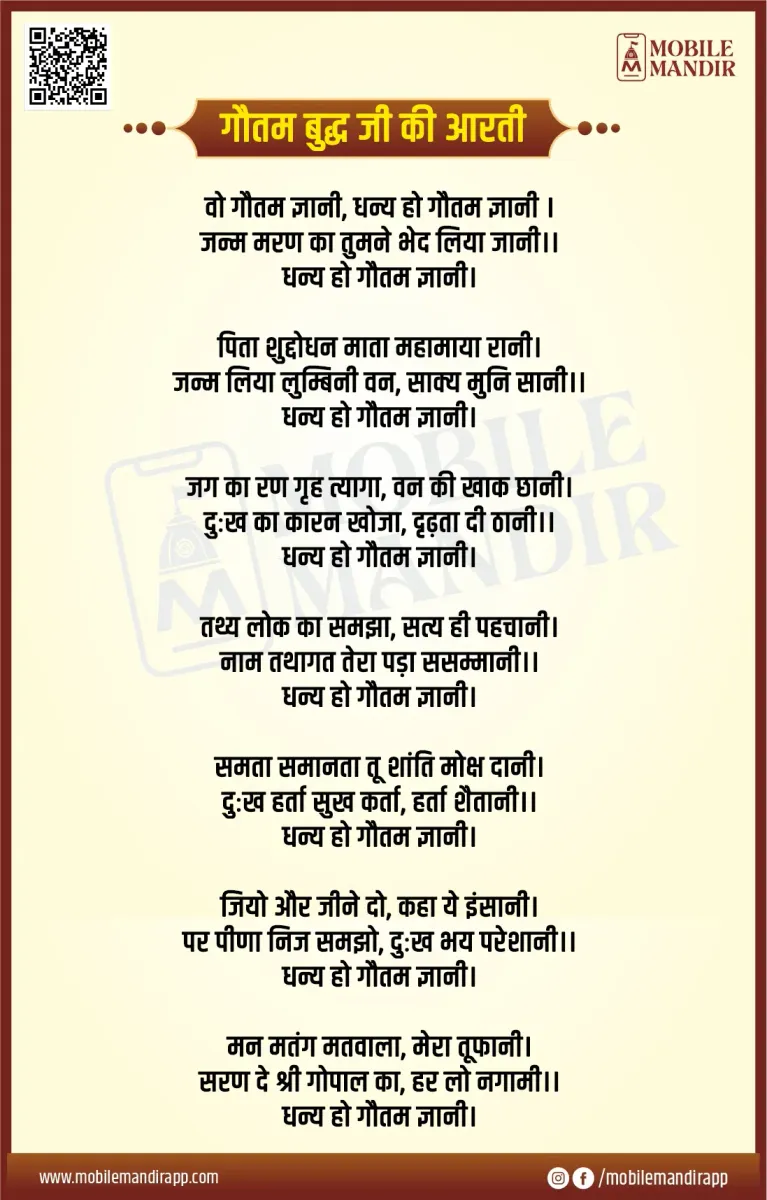 MOBILE
MANDIR
गौतम बुद्ध जी की आरती
वो गौतम ज्ञानी, धन्य हो गौतम ज्ञानी ।
जन्म मरण का तुमने भेद लिया जानी।।
धन्य हो गौतम ज्ञानी।
पिता शुद्दोधन माता महामाया रानी।
जन्म लिया लुम्बिनी वन, साक्य मुनि सानी।।
धन्य हो गौतम ज्ञानी।
जग का रण गृह त्यागा, वन की खाक छानी।
दुःख का कारन खोजा, दृढ़ता दी ठानी।।
धन्य हो गौतम ज्ञानी।
तथ्य लोक का समझा, सत्य ही पहचानी।
नाम तथागत तेरा पड़ा ससम्मानी।।
धन्य हो गौतम ज्ञानी।
समता समानता तू शांति मोक्ष दानी।
दुःख हर्ता सुख कर्ता, हर्ता शैतानी।।
धन्य हो गौतम ज्ञानी।
जियो और जीने दो, कहा ये इंसानी।
पर पीणा निज समझो, दुःख भय परेशानी।।
धन्य हो गौतम ज्ञानी।
मन मतंग मतवाला, मेरा तूफानी।
सरण दे श्री गोपाल का, हर लो नगामी।।
धन्य हो गौतम ज्ञानी।
MOBILE
MANDIR
www.mobilemandirapp.com
/mobilemandirapp